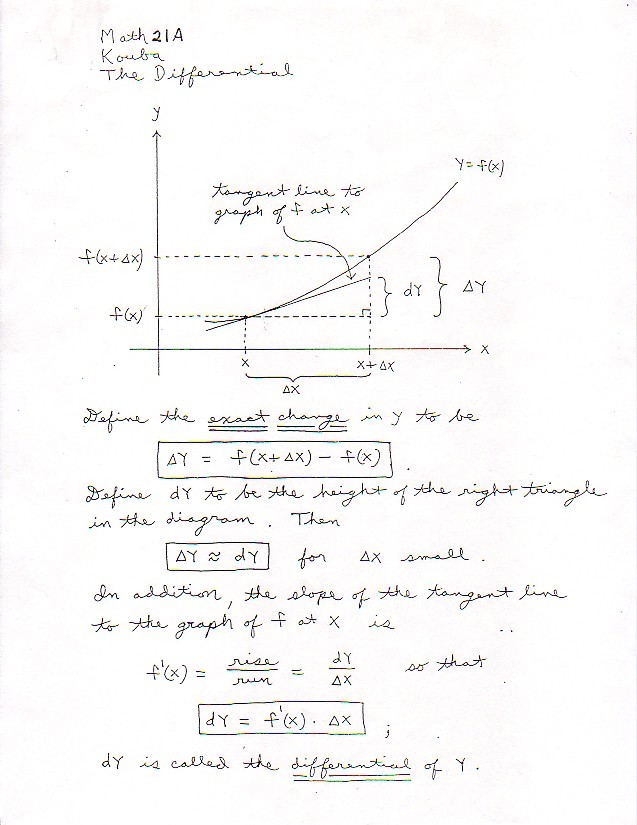 Math 21A
Kouba
The Differential
y
Y = f(x)
tangent line to
graph of f at x
f(x+Δx)
dY
ΔY
f(x)
x
x
x+Δx
Δx
Define the exact change in y to be
ΔY = f(x+Δx) − f(x) .
Define dY to be the height of the right triangle
in the diagram. Then
ΔY ≈ dY for Δx small.
In addition, the slope of the tangent line
to the graph of f at x is
f'(x) = rise/run = dY/Δx so that
dY = f'(x) · Δx ;
dY is called the differential of Y.